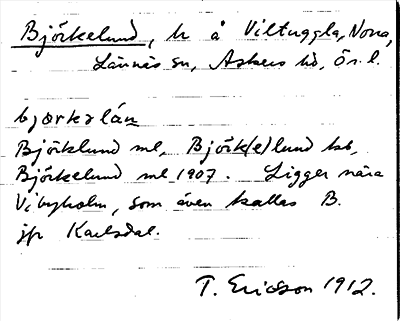 Björkelund, h å Viltuggla, Norra,
Lännäs sn, Askers hd, Ör. l.
bjœrkəlún
Björklund ml, Björk(e)lund hb,
Björkelund ml 1907. Ligger nära
Vibyholm, som även kallas B.
jfr Karlsdal.
T. Ericson 1912.